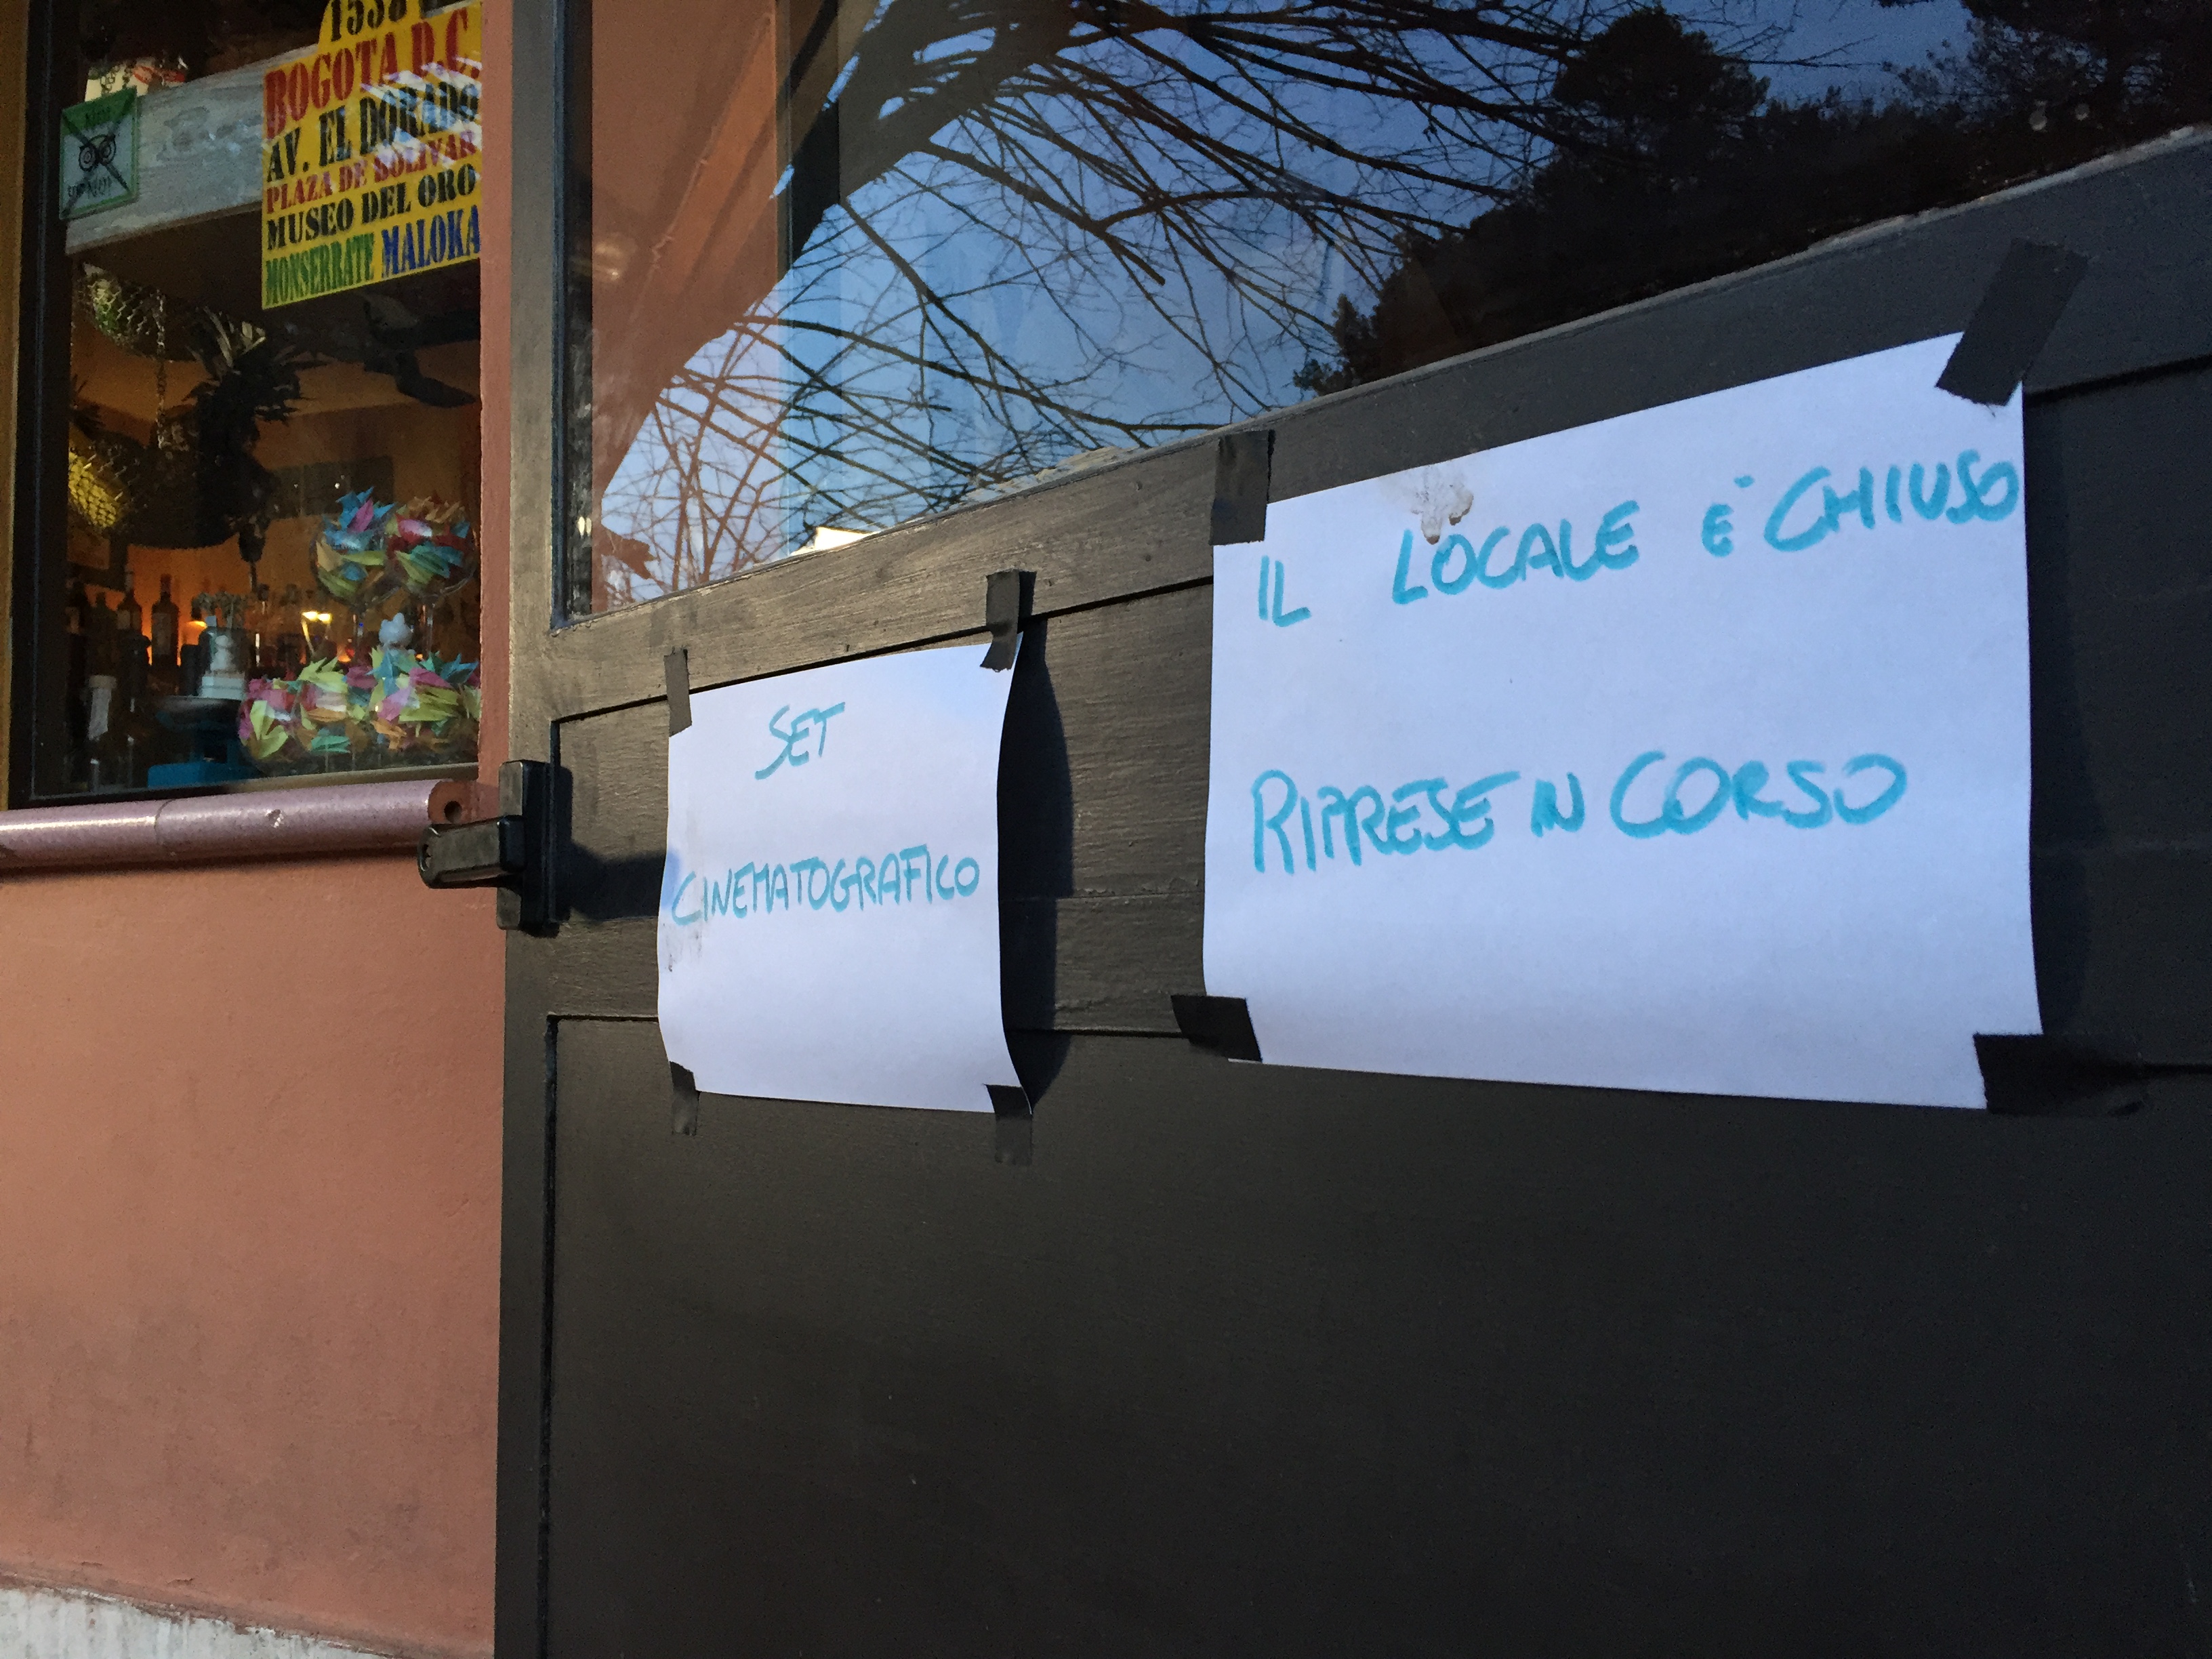 1538
BOGOTA D.C.
AV. EL DORADO
PLAZA DE BOLIVAR
MUSEO DEL ORO
MONSERRATE MALOKA
SET
CINEMATOGRAFICO
IL LOCALE E' CHIUSO
RIPRESE IN CORSO